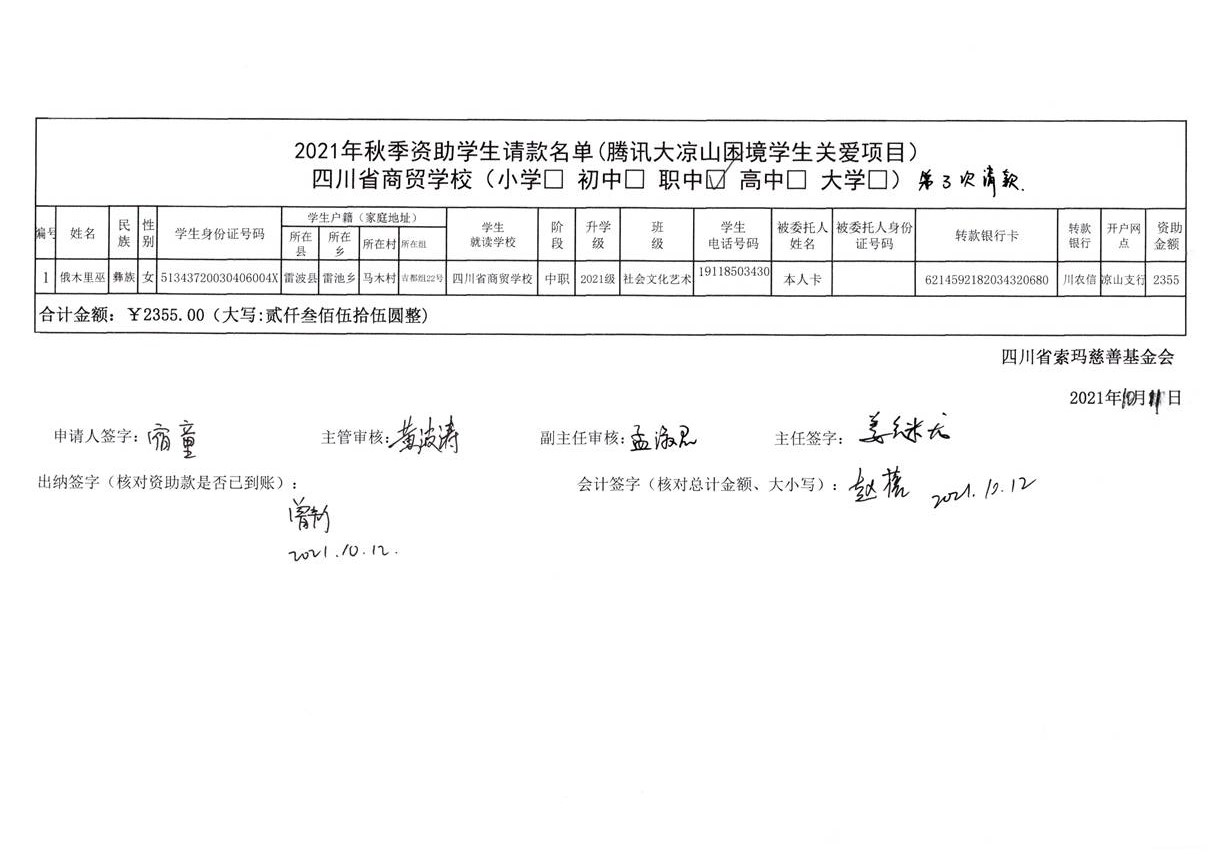 2021年秋季资助学生请款名单(腾讯大凉山困境学生关爱项目)
四川省商贸学校（小学□ 初中□ 职中☑ 高中□ 大学□）第3次请款.
编号 姓名 民族 性别 学生身份证号码 学生户籍（家庭地址） 所在县 所在乡 所在村 所在组 学生就读学校 阶段 升学级 班级 学生电话号码 被委托人姓名 被委托人身份证号码 转款银行卡 转款银行 开户网点 资助金额
1 俄木里巫 彝族 女 51343720030406004X 雷波县 雷池乡 马木村 吉都组22号 四川省商贸学校 中职 2021级 社会文化艺术 19118503430 本人卡 6214592182034320680 川农信 凉山支行 2355
合计金额：￥2355.00（大写:贰仟叁佰伍拾伍圆整)
四川省索玛慈善基金会
2021年10月11日
申请人签字： 主管审核：黄波涛 副主任审核： 主任签字：
出纳签字（核对资助款是否已到账）： 会计签字（核对总计金额、大小写）： 2021.10.12
2021.10.12.